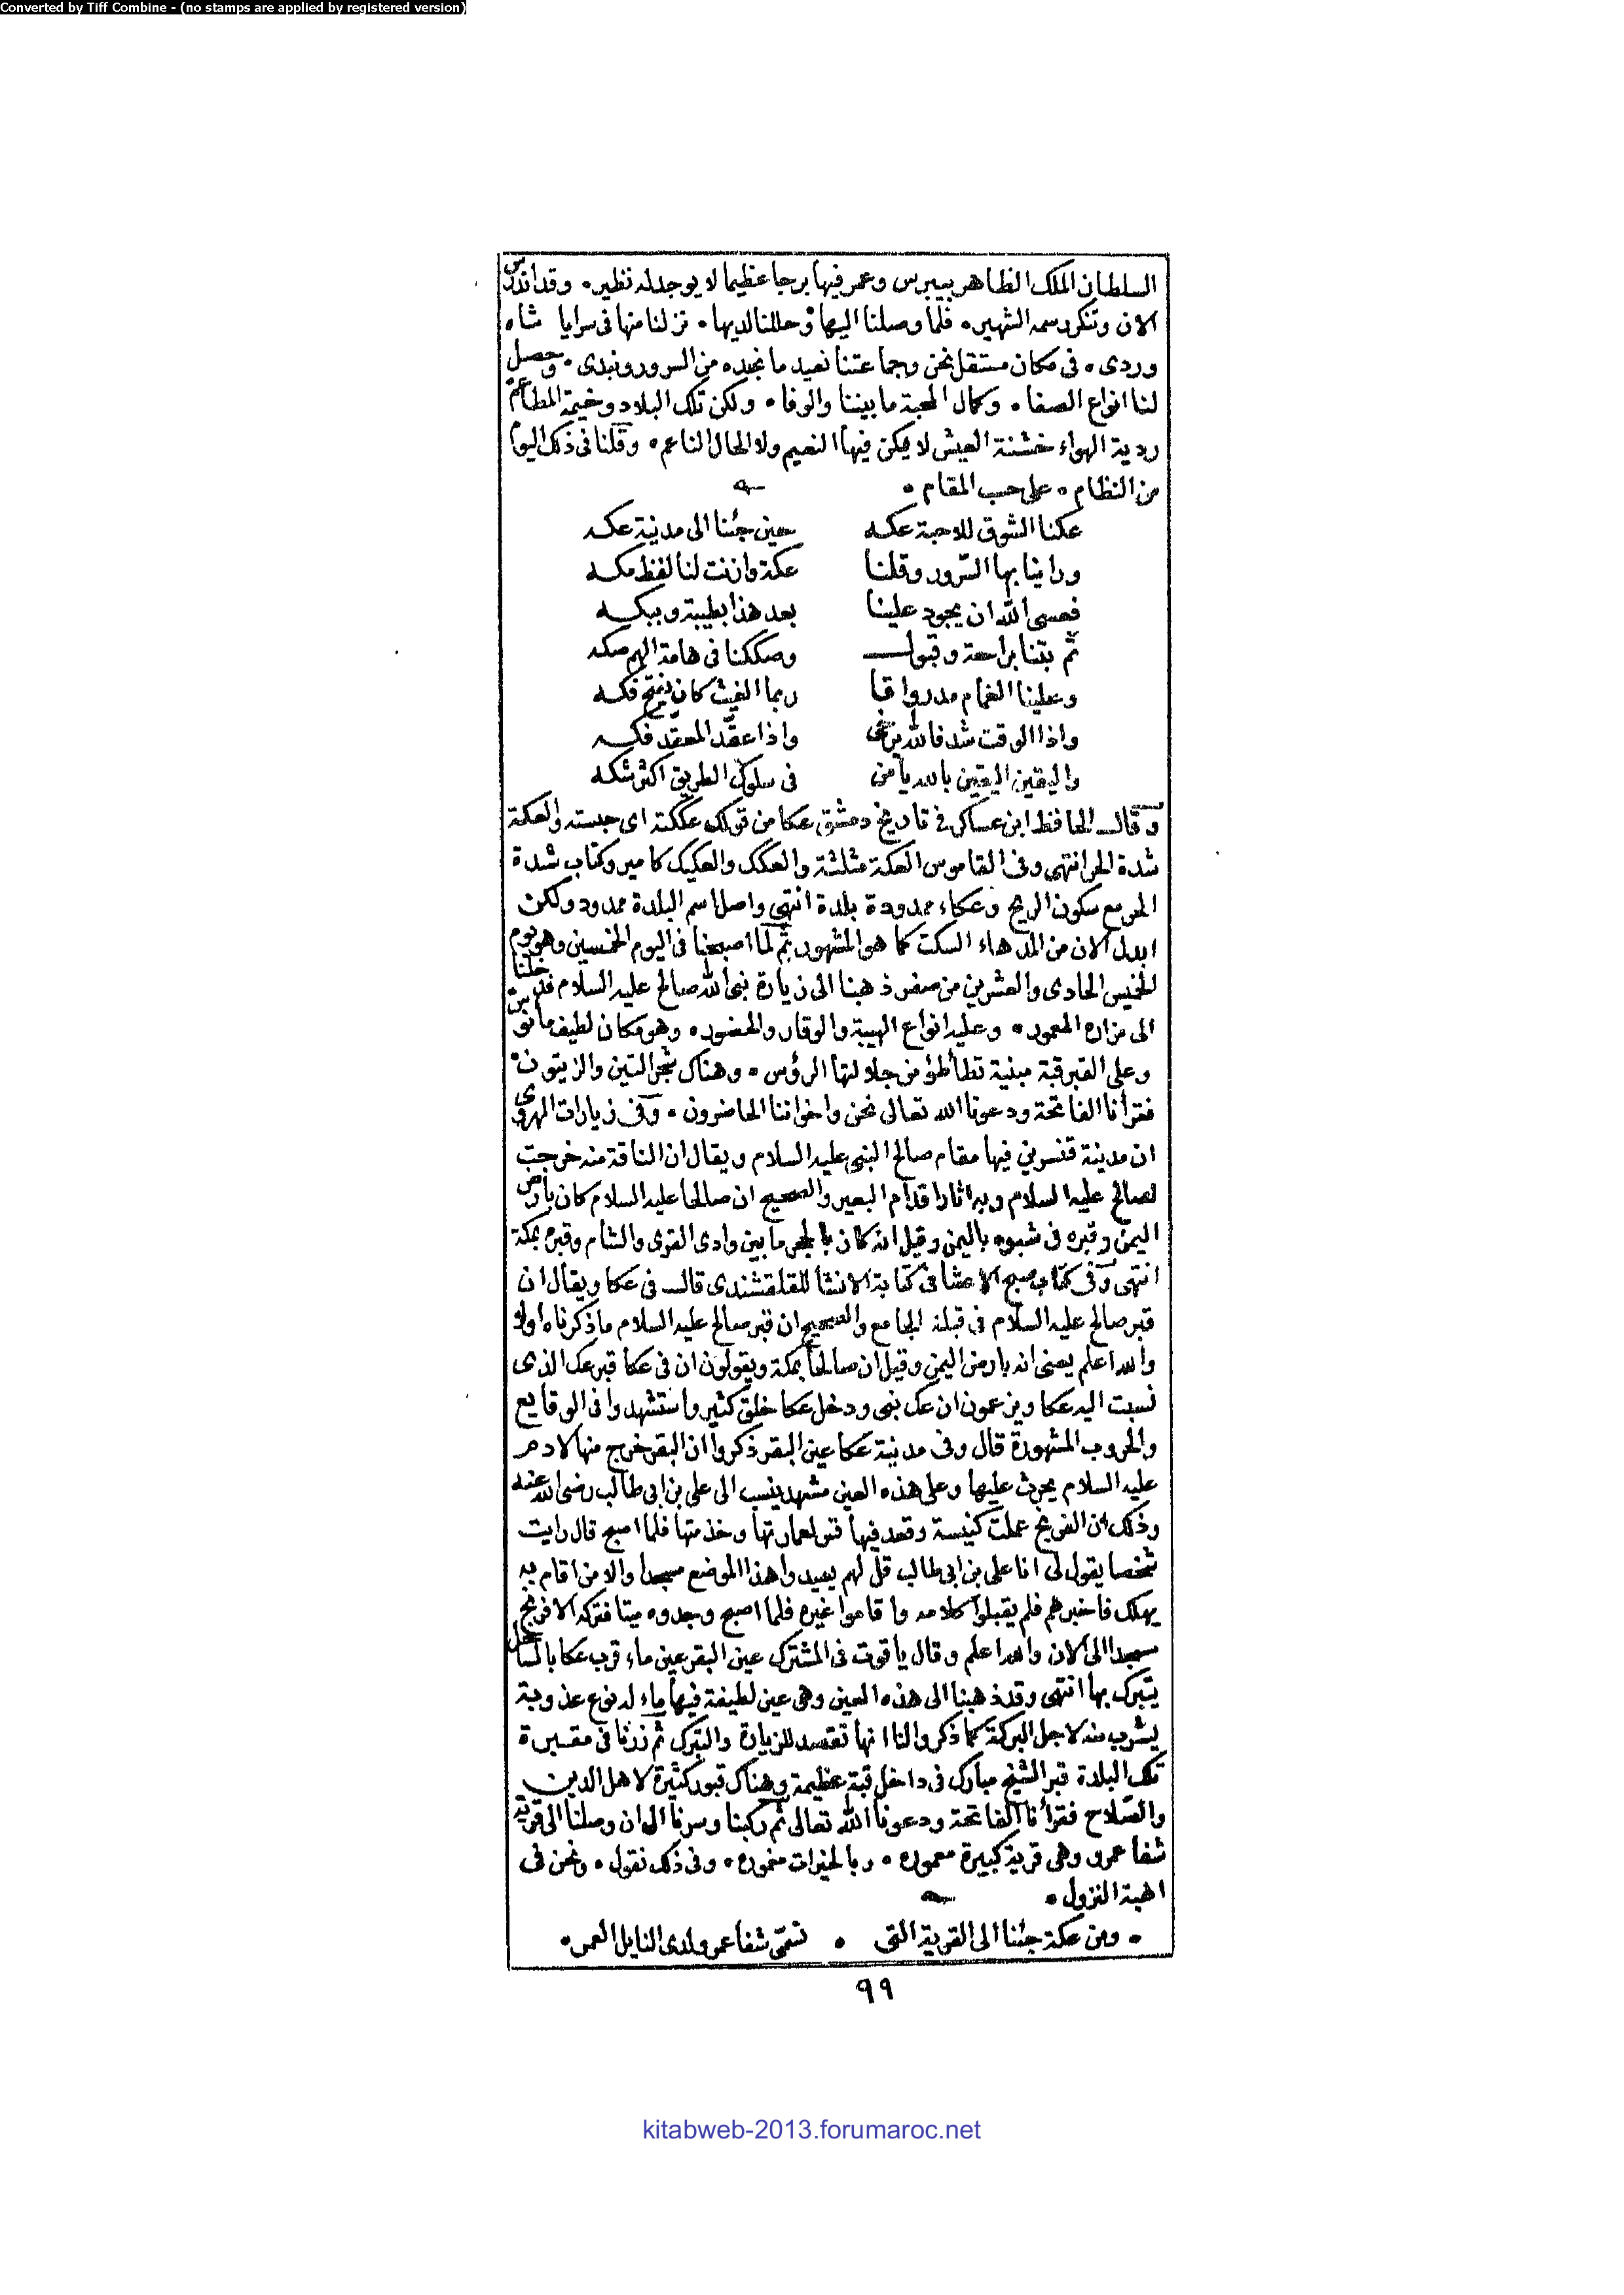 Converted by Tiff Combine - (no stamps are applied by registered version)
السلطان الملك الظاهر بيبرس وعمر فيها برجا عظيما لا يوجد له نظير ٠ وقد اندرس
الان وتنكر رسمه الشهير ٠ فلما وصلنا اليها وحللنا لديها ٠ نزلنا منها فى سرايا شاه
وردى ٠ فى مكان مستقل نحن وجماعتنا نعيد ما نجده من السرور ونبدى ٠ وحصل
لنا انواع الصفا ٠ وكمال المحبة ما بيننا والوفا ٠ ولكن تلك البلاد وخيمة المطاعم
ردية الهواء خشنة العيش لا يمكن فيها النعيم ولا الحال الناعم ٠ وقلنا فى ذلك اليوم
من النظام ٠ على حب المقام ٠
عكنا الشوق للاحبة عكه حين جئنا الى مدينة عكه
وراينا بها السّرور وقلنا عكة وازنت لنا لفظ مكه
فعسى الله ان يجود علينا بعد هذا بطيبة وببكه
ثم بتنا براحة وقبول وصككنا فى هامة الهم صكه
وعلينا الغمام مد رواقا ربما الغيث كان يفتح فكه
واذا الوقت شد فالله يرخى واذا عقّد المعقّد فكه
واليقين اليقين بالله يا من فى سلوك الطريق اكثر شكه
وقال الحافظ ابن عساكر فى تاريخ دمشق عكا من قولك عككته اى حبسته والعكة
شدة الحر انتهى وفى القاموس العكة مثلثة والعكك والعكيك كامير وكتاب شدة
الحر مع سكون الريح وعكاء ممدودة بلدة انتهى واصل اسم البلدة ممدود ولكن
ابدل الان من المد هاء السكت كما هو المشهور ثم لما اصبحنا فى اليوم الخمسين وهو يوم
الخميس الحادى والعشرين من صفر ذهبنا الى زيارة نبى الله صالح عليه السلام فدخلنا
الى مزاره المعمور ٠ وعليه انواع الهيبة والوقار والحضور ٠ وهو مكان لطيف مأنوس
وعلى القبر قبة مبنية تطأطؤ من جلالتها الرؤس ٠ وهناك شجر التين والزيتون
فقرأنا الفاتحة ودعونا الله تعالى نحن واخواننا الحاضرون ٠ وفى زيارات الهروى
ان مدينة قنسرين فيها مقام صالح النبى عليه السلام ويقال ان الناقة منه خرجت
لصالح عليه السلام وبه اثار اقدام البعير والصحيح ان صالحا عليه السلام كان بارض
اليمن وقبره فى شبوه باليمن وقيل انه كان بالحجر ما بين وادى القرى والشام وقبره بمكة
انتهى وفى كتاب صبح الاعشا فى كتابة الانشا للقلقشندى قال فى عكا ويقال ان
قبر صالح عليه السلام فى قبلة الجامع والصحيح ان قبر صالح عليه السلام ما ذكرناه اولا
والله اعلم يعنى انه بارض اليمن وقيل ان صالحا بمكة ويقولون ان فى عكا قبر عك الذى
نسبت اليه عكا ويزعمون ان عك نبى ودخل عكا خلق كثير واستشهدوا فى الوقايع
والحروب المشهورة قال وفى مدينة عكا عين البقر ذكروا ان البقر خرج منها لادم
عليه السلام يحرث عليها وعلى هذه العين مشهد ينسب الى على بن ابى طالب رضى الله عنه
وذلك ان الفرنج عملت كنيسة وقعد فيها قيم لعمارتها وخدمتها فلما اصبح قال رايت
شخصا يقول لى انا على بن ابى طالب قل لهم يعيدوا هذا الموضع مسجدا والا من اقام به
يهلك فاخبرهم فلم يقبلوا كلامه واقاموا غيره فلما اصبح وجدوه ميتا فتركه الافرنج
مسجدا الى الان والله اعلم وقال ياقوت فى المشترك عين البقر عين ماء قرب عكا بالساحل
يتبرك بها انتهى وقد ذهبنا الى هذه العين وهى عين لطيفة فيها ماء له نوع عذوبة
يشرب منه لاجل البركة كما ذكروا لنا انها تقصد للزيارة والتبرك ثم زرنا فى مقبرة
تلك البلدة قبر الشيخ مبارك فى داخل قبة عظيمة وهناك قبور كثيرة لاهل الدين
والصّلاح فقرأنا الفاتحة ودعونا الله تعالى ثم ركبنا وسرنا الى ان وصلنا الى قرية
شفا عمرو وهى قرية كبيرة معموره ٠ وبالخيرات مغموره ٠ وفى ذلك نقول ٠ ونحن فى
اهبة النزول ٠
٠ ومن عكة جئنا الى القرية التى ٠ تسمّى شفا عمر ولدى النايل العمر ٠
٩٩
kitabweb-2013.forumaroc.net